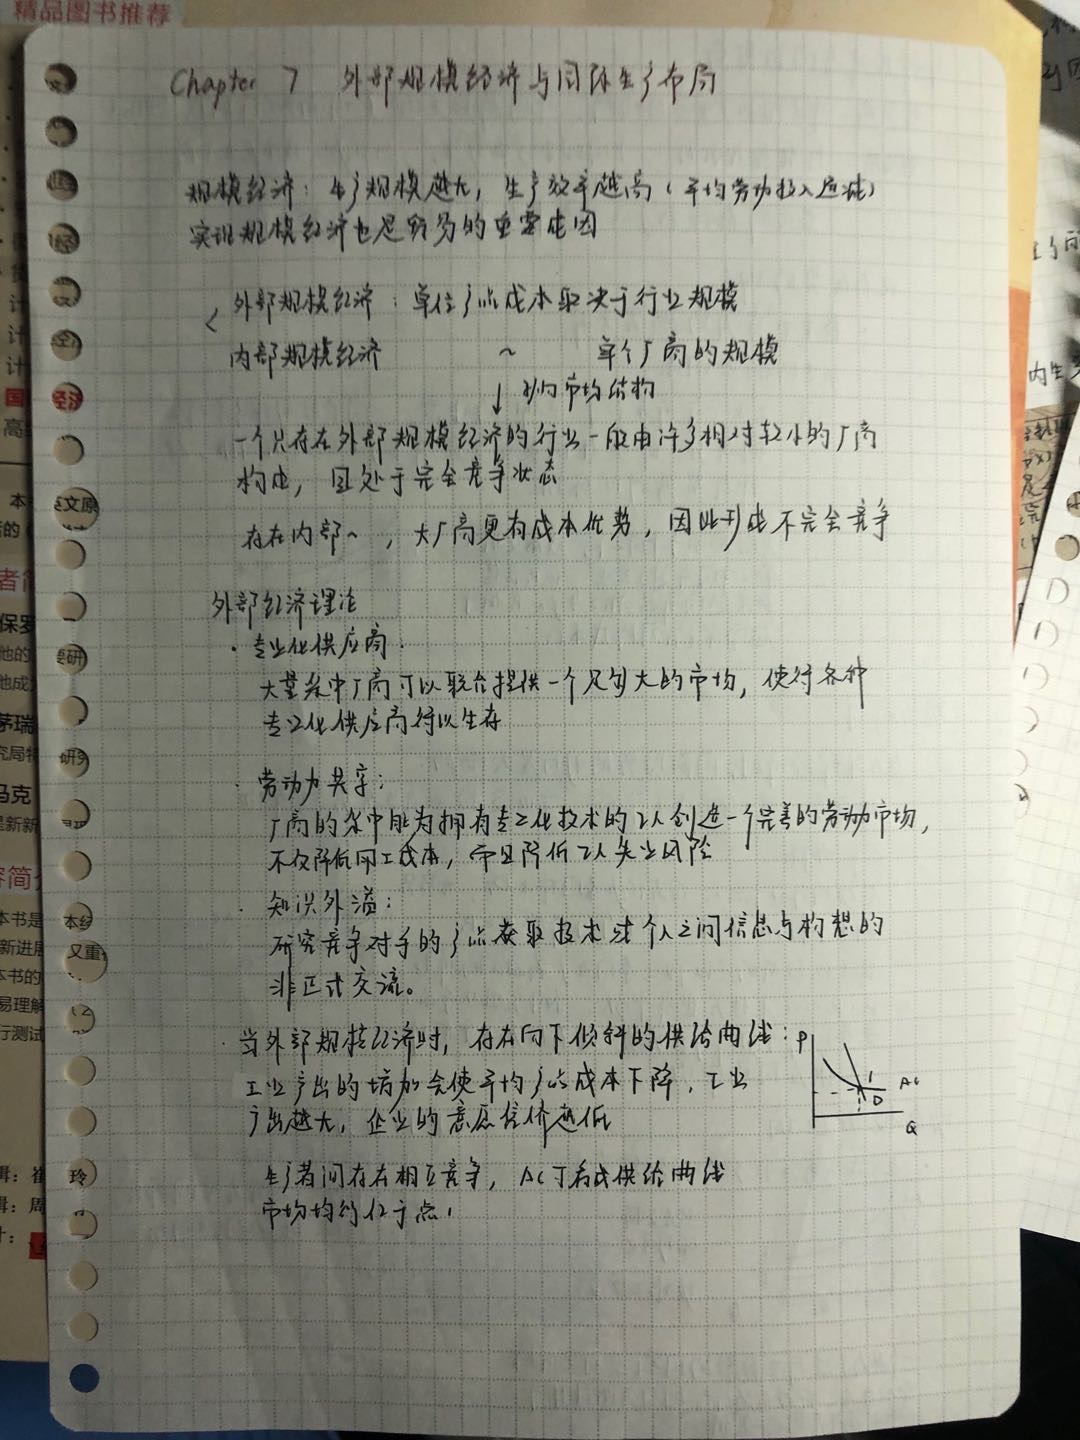 精品图书推荐
Chapter 7 外部规模经济与国际生产布局
规模经济：生产规模越大，生产效率越高（平均劳动投入递减）
实现规模经济也是贸易的重要起因
外部规模经济：单位产品成本取决于行业规模
内部规模经济 ~ 单个厂商的规模
↓ 影响市场结构
一个只存在外部规模经济的行业一般由许多相对较小的厂商
构成，且处于完全竞争状态
存在内部~，大厂商更有成本优势，因此形成不完全竞争
外部经济理论
·专业化供应商：
大量集中厂商可以联合提供一个足够大的市场，使得各种
专业化供应商得以生存
·劳动力共享：
厂商的集中能为拥有专业化技术的工人创造一个完善的劳动市场，
不仅降低用工成本，而且降低工人失业风险
·知识外溢：
研究竞争对手的产品获取技术或个人之间信息与构想的
非正式交流。
·当外部规模经济时，存在向下倾斜的供给曲线：
工业产出的增加会使平均产品成本下降，工业
产出越大，企业的意愿售价越低
P
1
AC
D
Q
生产者间存在相互竞争，AC可看成供给曲线
市场均衡位于点1